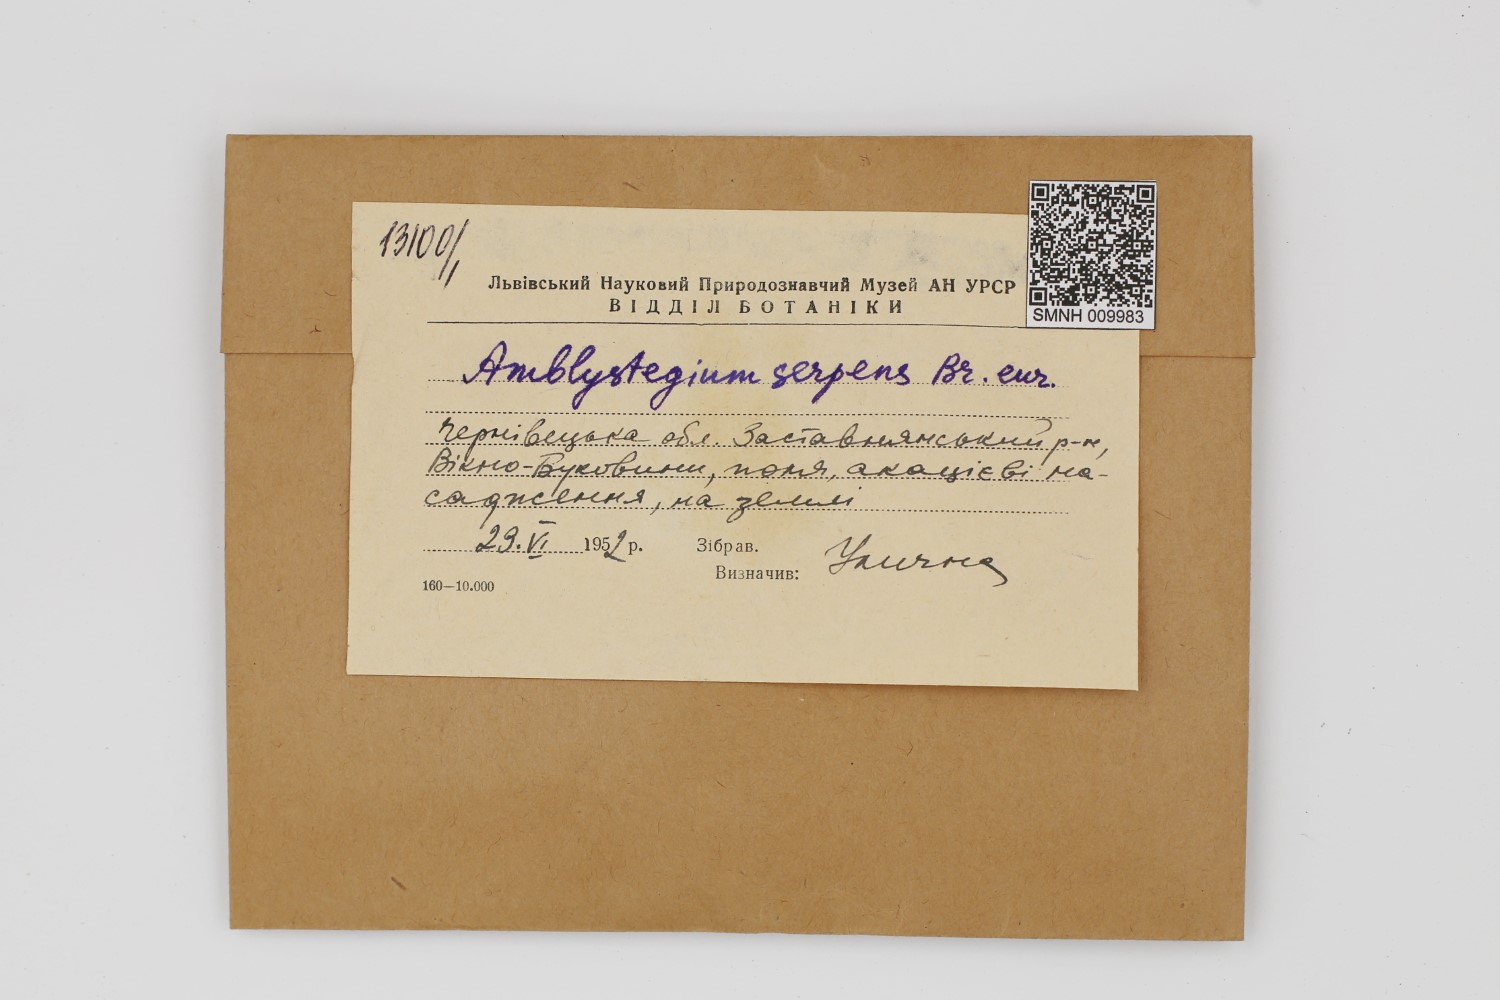 13100/1
Львівський Науковий Природознавчий Музей АН УРСР
ВІДДІЛ БОТАНІКИ
SMNH 009983
Amblystegium serpens Br. eur.
Чернівецька обл. Заставнянський р-н,
Вікно-Буковини, поля, акацієві на-
садження, на землі
29.VI 1952 р. Зібрав.
Визначив: Улична
160—10.000